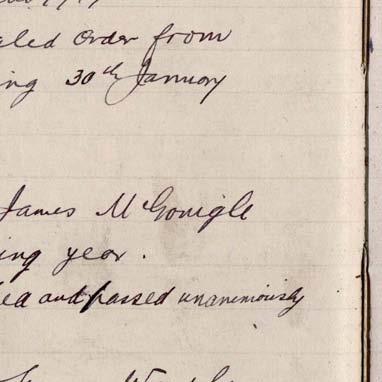 aled Order from
ing 30th January
James McGonigle
ing year.
ed and passed unanemiously